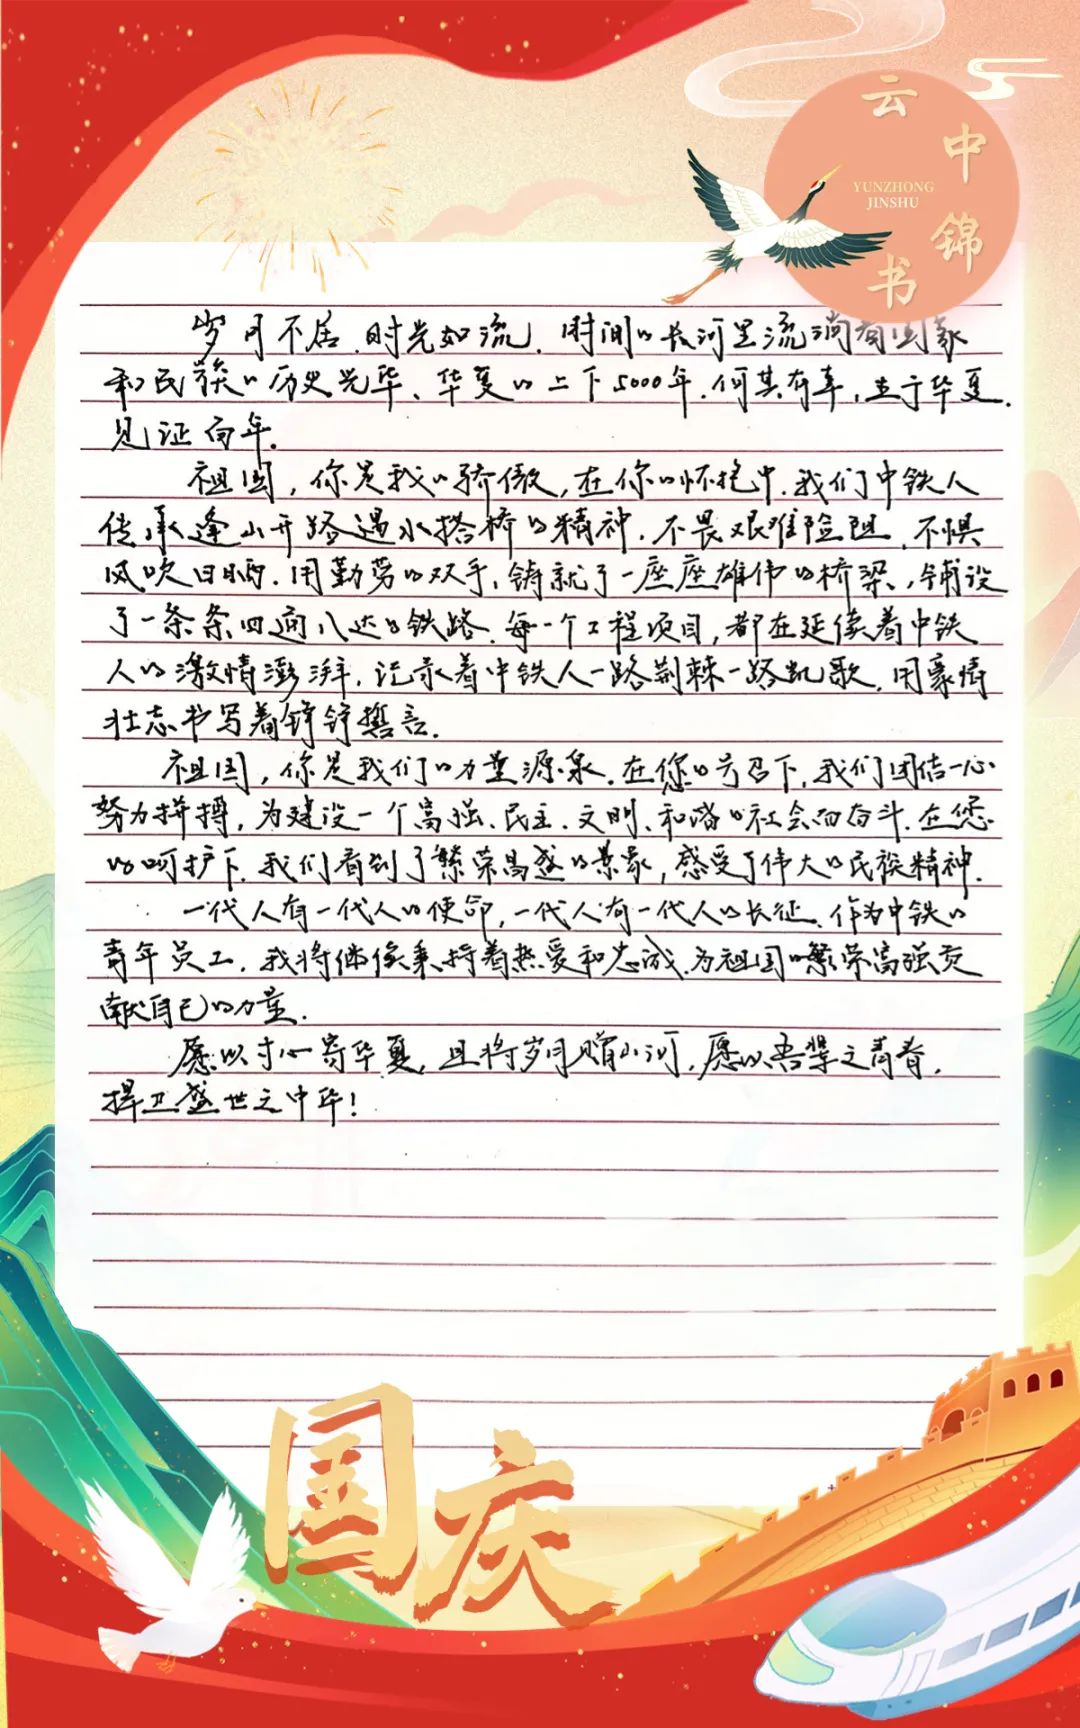 云中锦书
YUNZHONG
JINSHU
岁月不居.时光如流.时间的长河里流淌着国家
和民族的历史光华、华夏的上下5000年.何其有幸,生于华夏.
见证百年.
祖国,你是我的骄傲,在你的怀抱中.我们中铁人
传承逢山开路遇水搭桥的精神.不畏艰难险阻.不惧
风吹日晒.用勤劳的双手,铸就了一座座雄伟的桥梁,铺设
了一条条四通八达的铁路.每一个工程项目,都在延续着中铁
人的激情澎湃.记录着中铁人一路荆棘一路凯歌.用豪情
壮志书写着铮铮誓言.
祖国,你是我们的力量源泉.在您的号召下,我们团结一心
努力拼搏,为建设一个富强、民主、文明、和谐的社会而奋斗.在您
的呵护下.我们看到了繁荣昌盛的景象,感受了伟大的民族精神.
一代人有一代人的使命,一代人有一代人的长征.作为中铁的
青年员工.我将继续秉持着热爱和忠诚.为祖国的繁荣富强贡
献自己的力量.
愿以寸心寄华夏,且将岁月赠山河,愿以吾辈之青春,
捍卫盛世之中华!
国庆